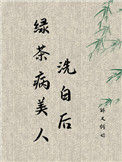 绿茶病美人
洗白后